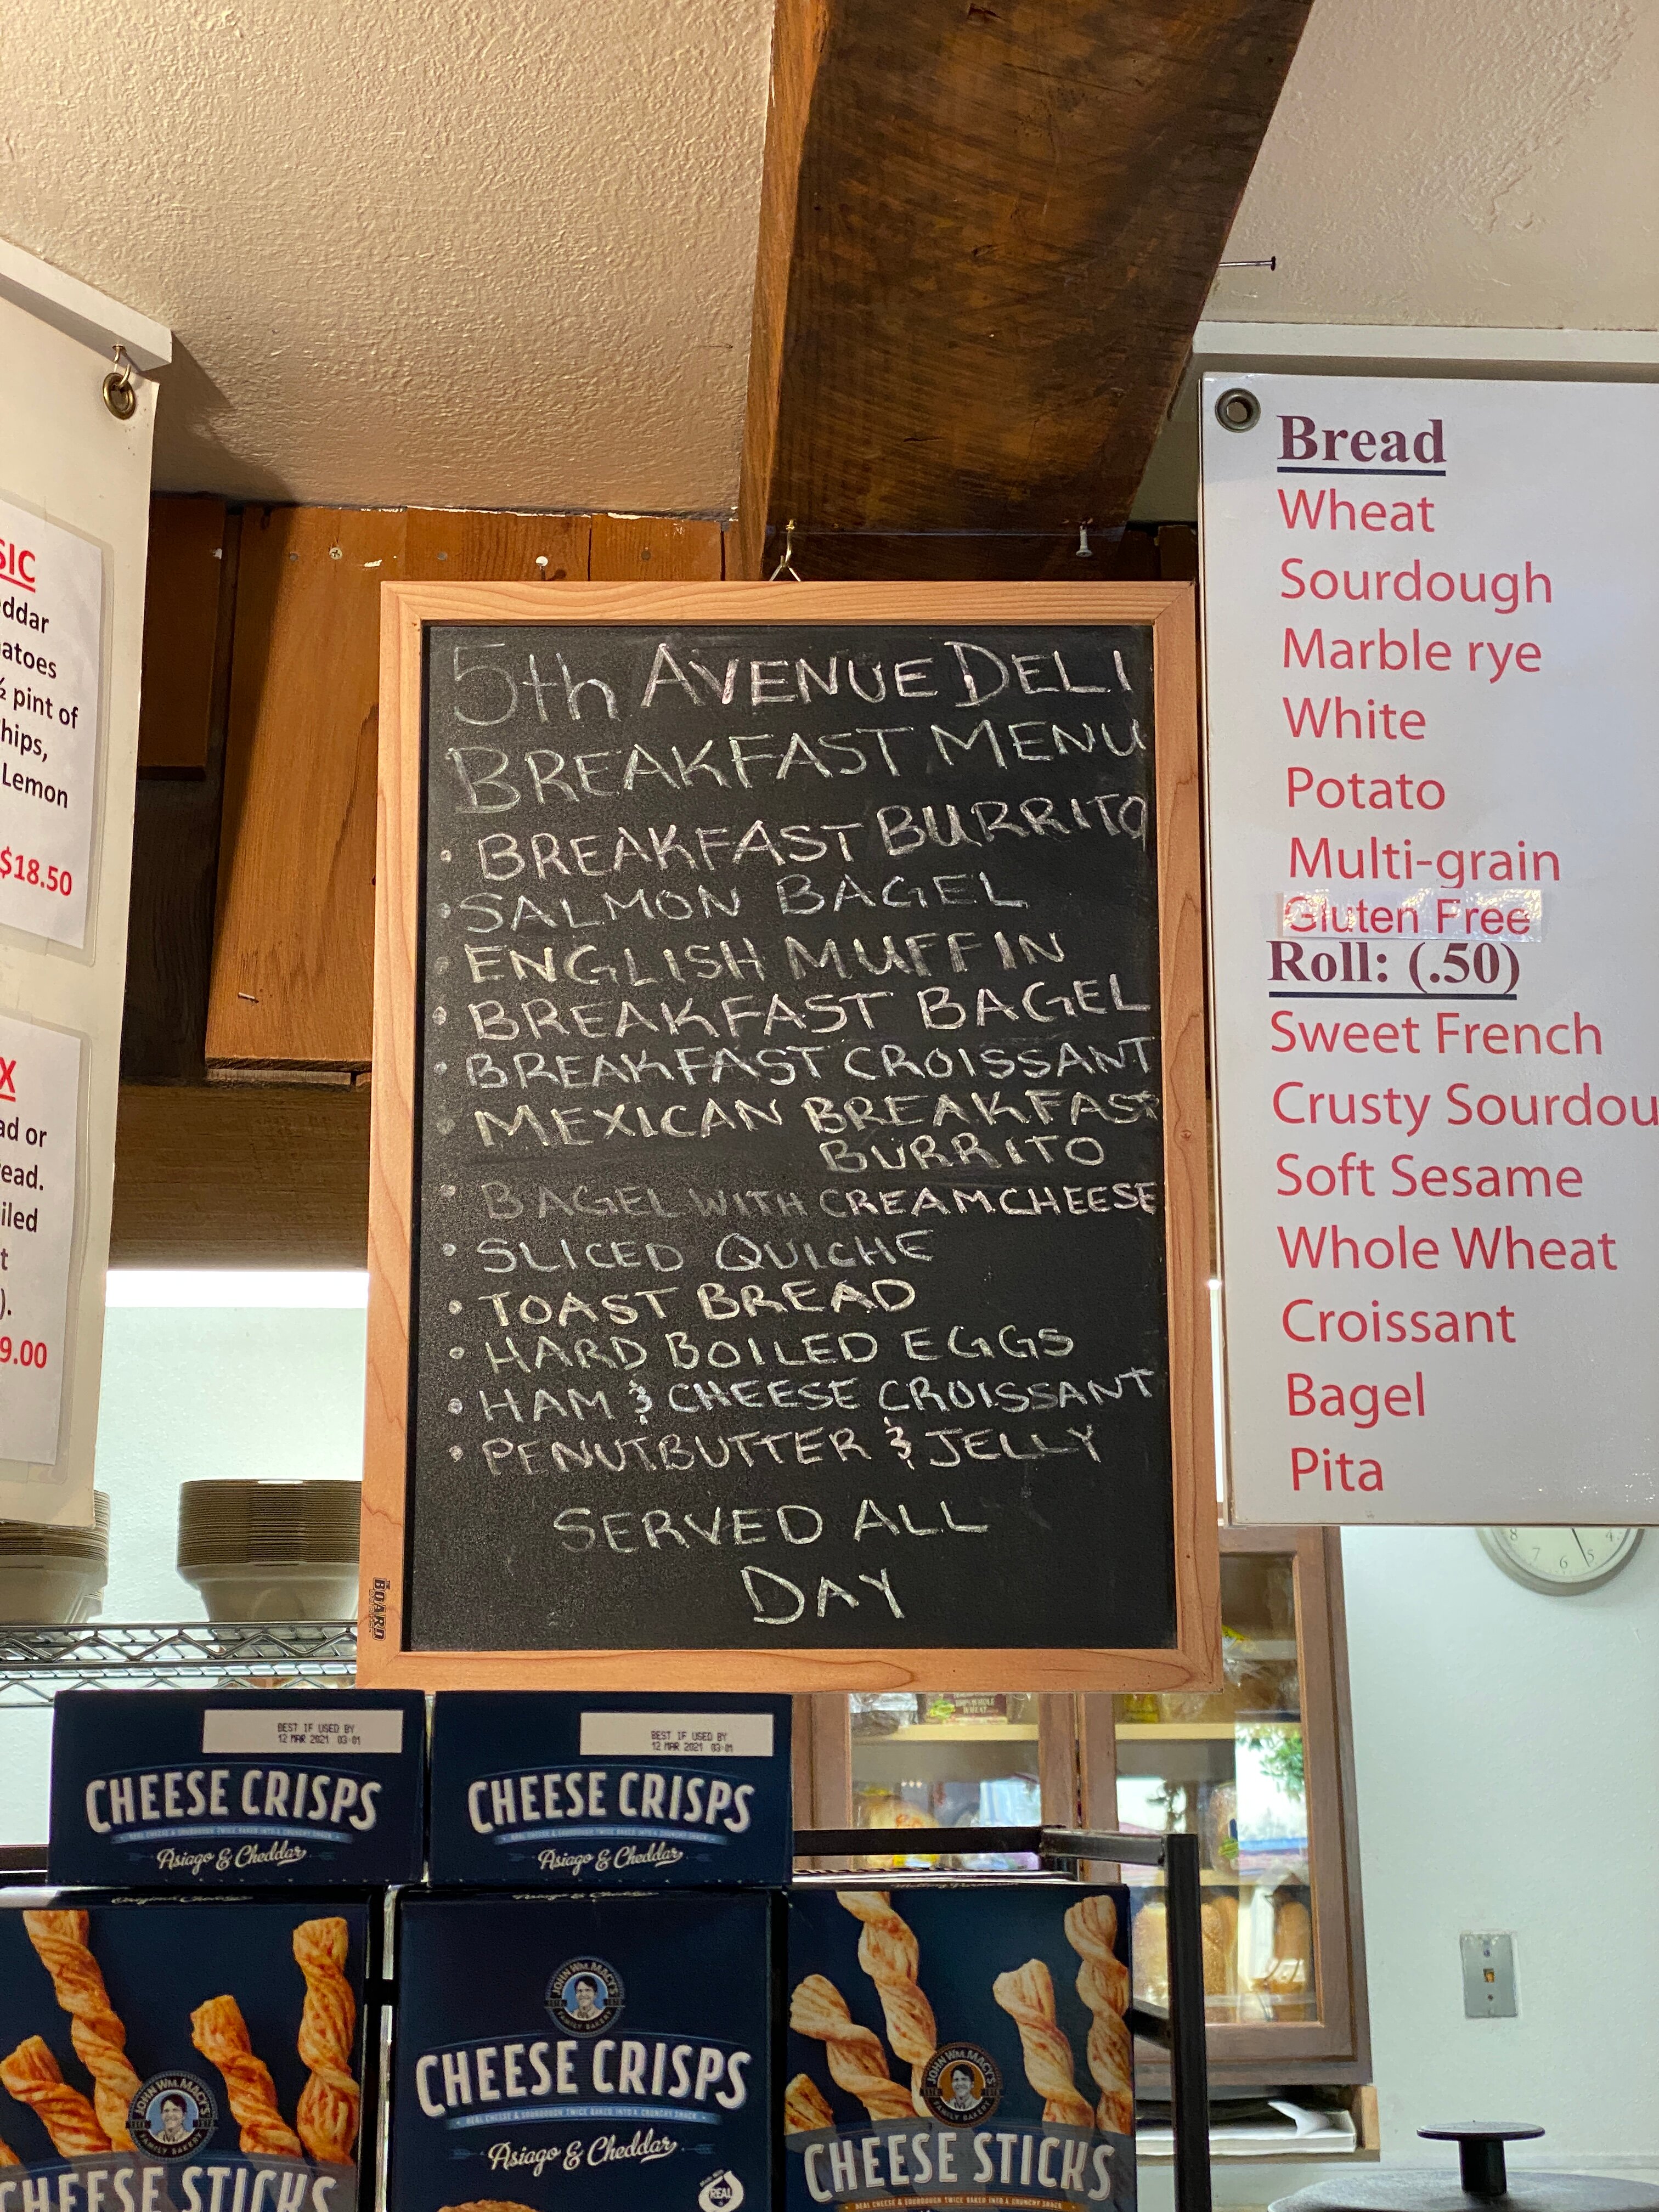 SIC
eddar
atoes
½ pint of
hips,
Lemon
$18.50
X
ad or
ead.
iled
t
).
9.00
5th AVENUE DELI
BREAKFAST MENU
• BREAKFAST BURRITO
• SALMON BAGEL
• ENGLISH MUFFIN
• BREAKFAST BAGEL
• BREAKFAST CROISSANT
• MEXICAN BREAKFAST
BURRITO
• BAGEL WITH CREAMCHEESE
• SLICED QUICHE
• TOAST BREAD
• HARD BOILED EGGS
• HAM & CHEESE CROISSANT
• PENUTBUTTER & JELLY
SERVED ALL
DAY
BOARD
Bread
Wheat
Sourdough
Marble rye
White
Potato
Multi-grain
Gluten Free
Roll: (.50)
Sweet French
Crusty Sourdou
Soft Sesame
Whole Wheat
Croissant
Bagel
Pita
8 7 6 5
BEST IF USED BY
12 MAR 2021 03:01
CHEESE CRISPS
REAL CHEESE & SOURDOUGH TWICE BAKED INTO A CRUNCHY SNACK
Asiago & Cheddar
BEST IF USED BY
12 MAR 2021 03:01
CHEESE CRISPS
REAL CHEESE & SOURDOUGH TWICE BAKED INTO A CRUNCHY SNACK
Asiago & Cheddar
JOHN WM. MACY'S
FAMILY BAKERY
CHEESE STICKS
Asiago & Cheddar
JOHN WM. MACY'S
FAMILY BAKERY
CHEESE CRISPS
REAL CHEESE & SOURDOUGH TWICE BAKED INTO A CRUNCHY SNACK
Asiago & Cheddar
REAL
JOHN WM. MACY'S
FAMILY BAKERY
CHEESE STICKS
REAL CHEESE & SOURDOUGH TWICE BAKED INTO A CRUNCHY SNACK